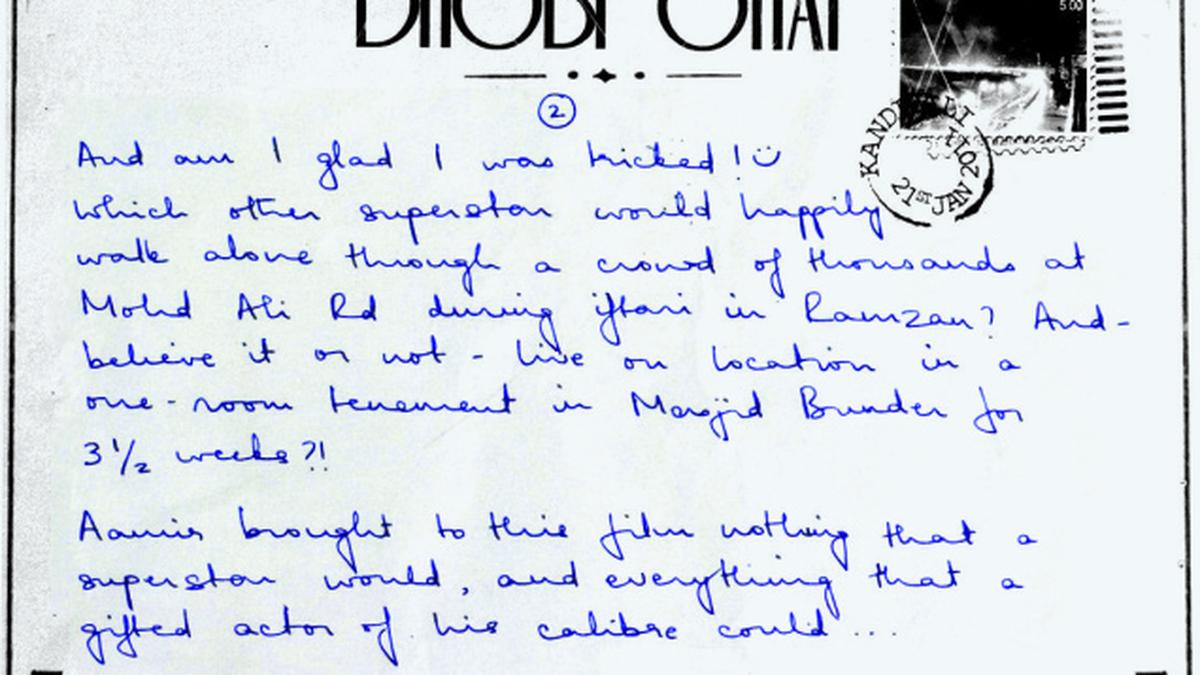 DHOBI GHAT
5.00
KANDI
21ST JAN 2011
2
And am I glad I was tricked! ☺
Which other superstar would happily
walk alone through a crowd of thousands at
Mohd Ali Rd during iftari in Ramzan? And-
believe it or not - live on location in a
one-room tenement in Masjid Bunder for
3 1/2 weeks?!
Aamir brought to this film nothing that a
superstar would, and everything that a
gifted actor of his calibre could ...